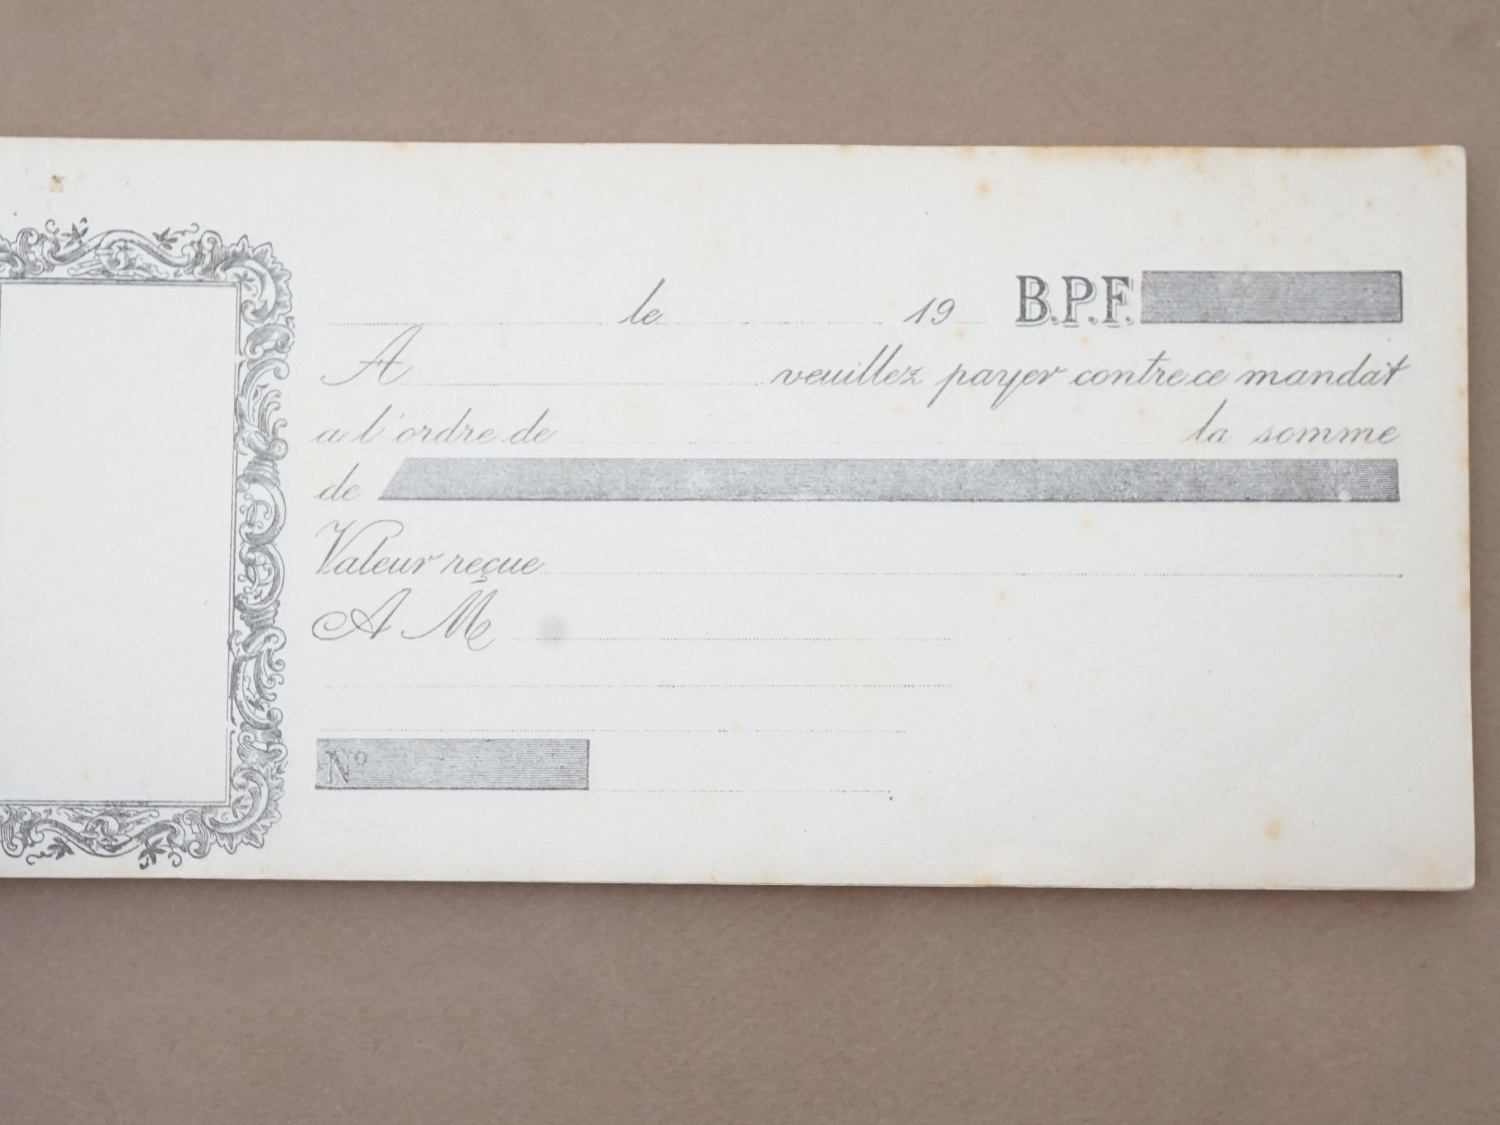 le 19 B.P.F.
A veuillez payer contre ce mandat
a l'ordre de la somme
de
Valeur reçue
A M
Nº